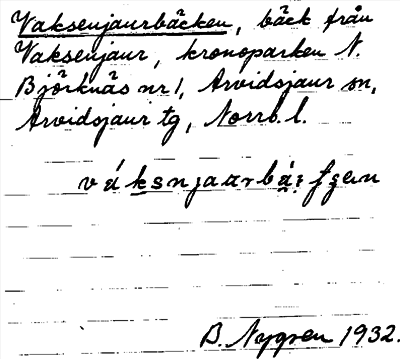 Vaksenjaurbäcken, bäck från
Vaksenjaur, kronoparken N.
Björknäs nr 1, Arvidsjaur sn,
Arvidsjaur tg, Norrb. l.
B. Nygren 1932.